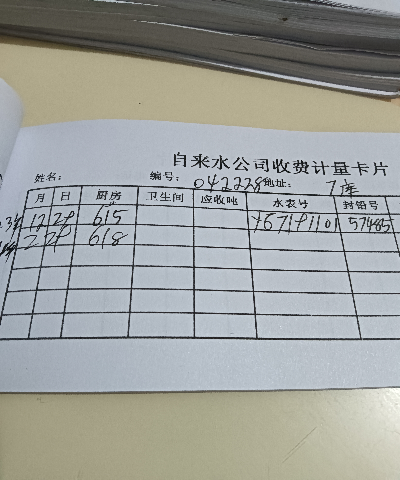 自来水公司收费计量卡片
姓名： 编号：042228 地址： 7库
月 日 厨房 卫生间 应收吨 水表号 封铅号
12 28 615 57485
2 28 618